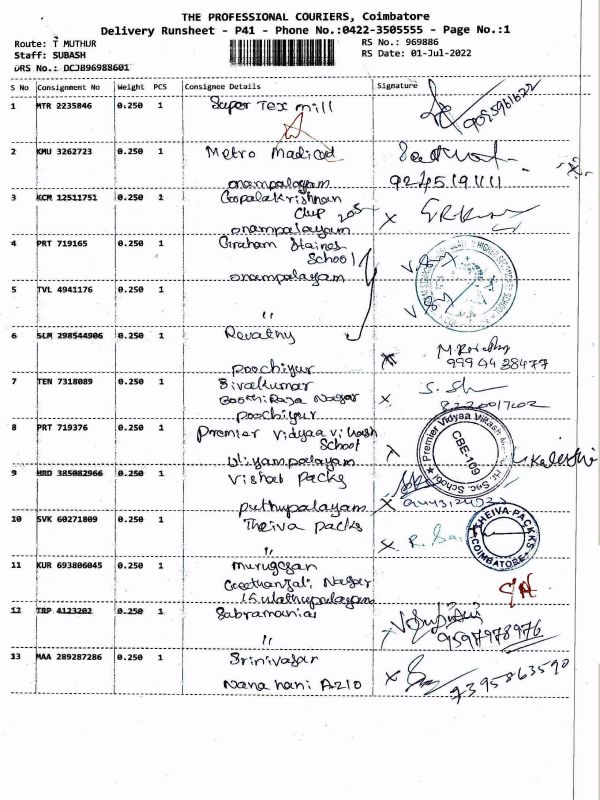 THE PROFESSIONAL COURIERS, Coimbatore
Delivery Runsheet - P41 - Phone No.:0422-3505555 - Page No.:1
Route: T MUTHUR
Staff: SUBASH
DRS No.: DCJB96988601
RS No.: 969886
RS Date: 01-Jul-2022
S No Consignment No Weight PCS Consignee Details Signature
1 MTR 2235846 0.250 1 Super Tex mill
2 KMU 3262723 0.250 1 Metro Madical
onampalayam 9245191111
3 KCM 12511751 0.250 1 Gopalakrishnan
Clup
onampalayam
4 PRT 719165 0.250 1 Graham Staines
School
onampalayam
5 TVL 4941176 0.250 1
"
6 SLM 298544906 0.250 1 Revathy
poochiyur 9994438477
7 TEN 7318089 0.250 1 Sivakumar
Boomi Raja Nagar
poochiyur
8 PRT 719376 0.250 1 Premier Vidyaa Vikash
School
Uliyampalayam
Premier Vidyaa Vikash
Hr. Sec. School
CBE-109
9 HRD 385082966 0.250 1 Vishal Packs
puthupalayam
10 SVK 60271809 0.250 1 Theiva packs
"
THEIVA PACKS
COIMBATORE
11 KUR 693806045 0.250 1 murugesan
Geethanjali Nagar
12 TRP 4123202 0.250 1 Subramaniar
" 9597978976
13 MAA 289287286 0.250 1 Srinivasan
Nana hani A210 9395863590